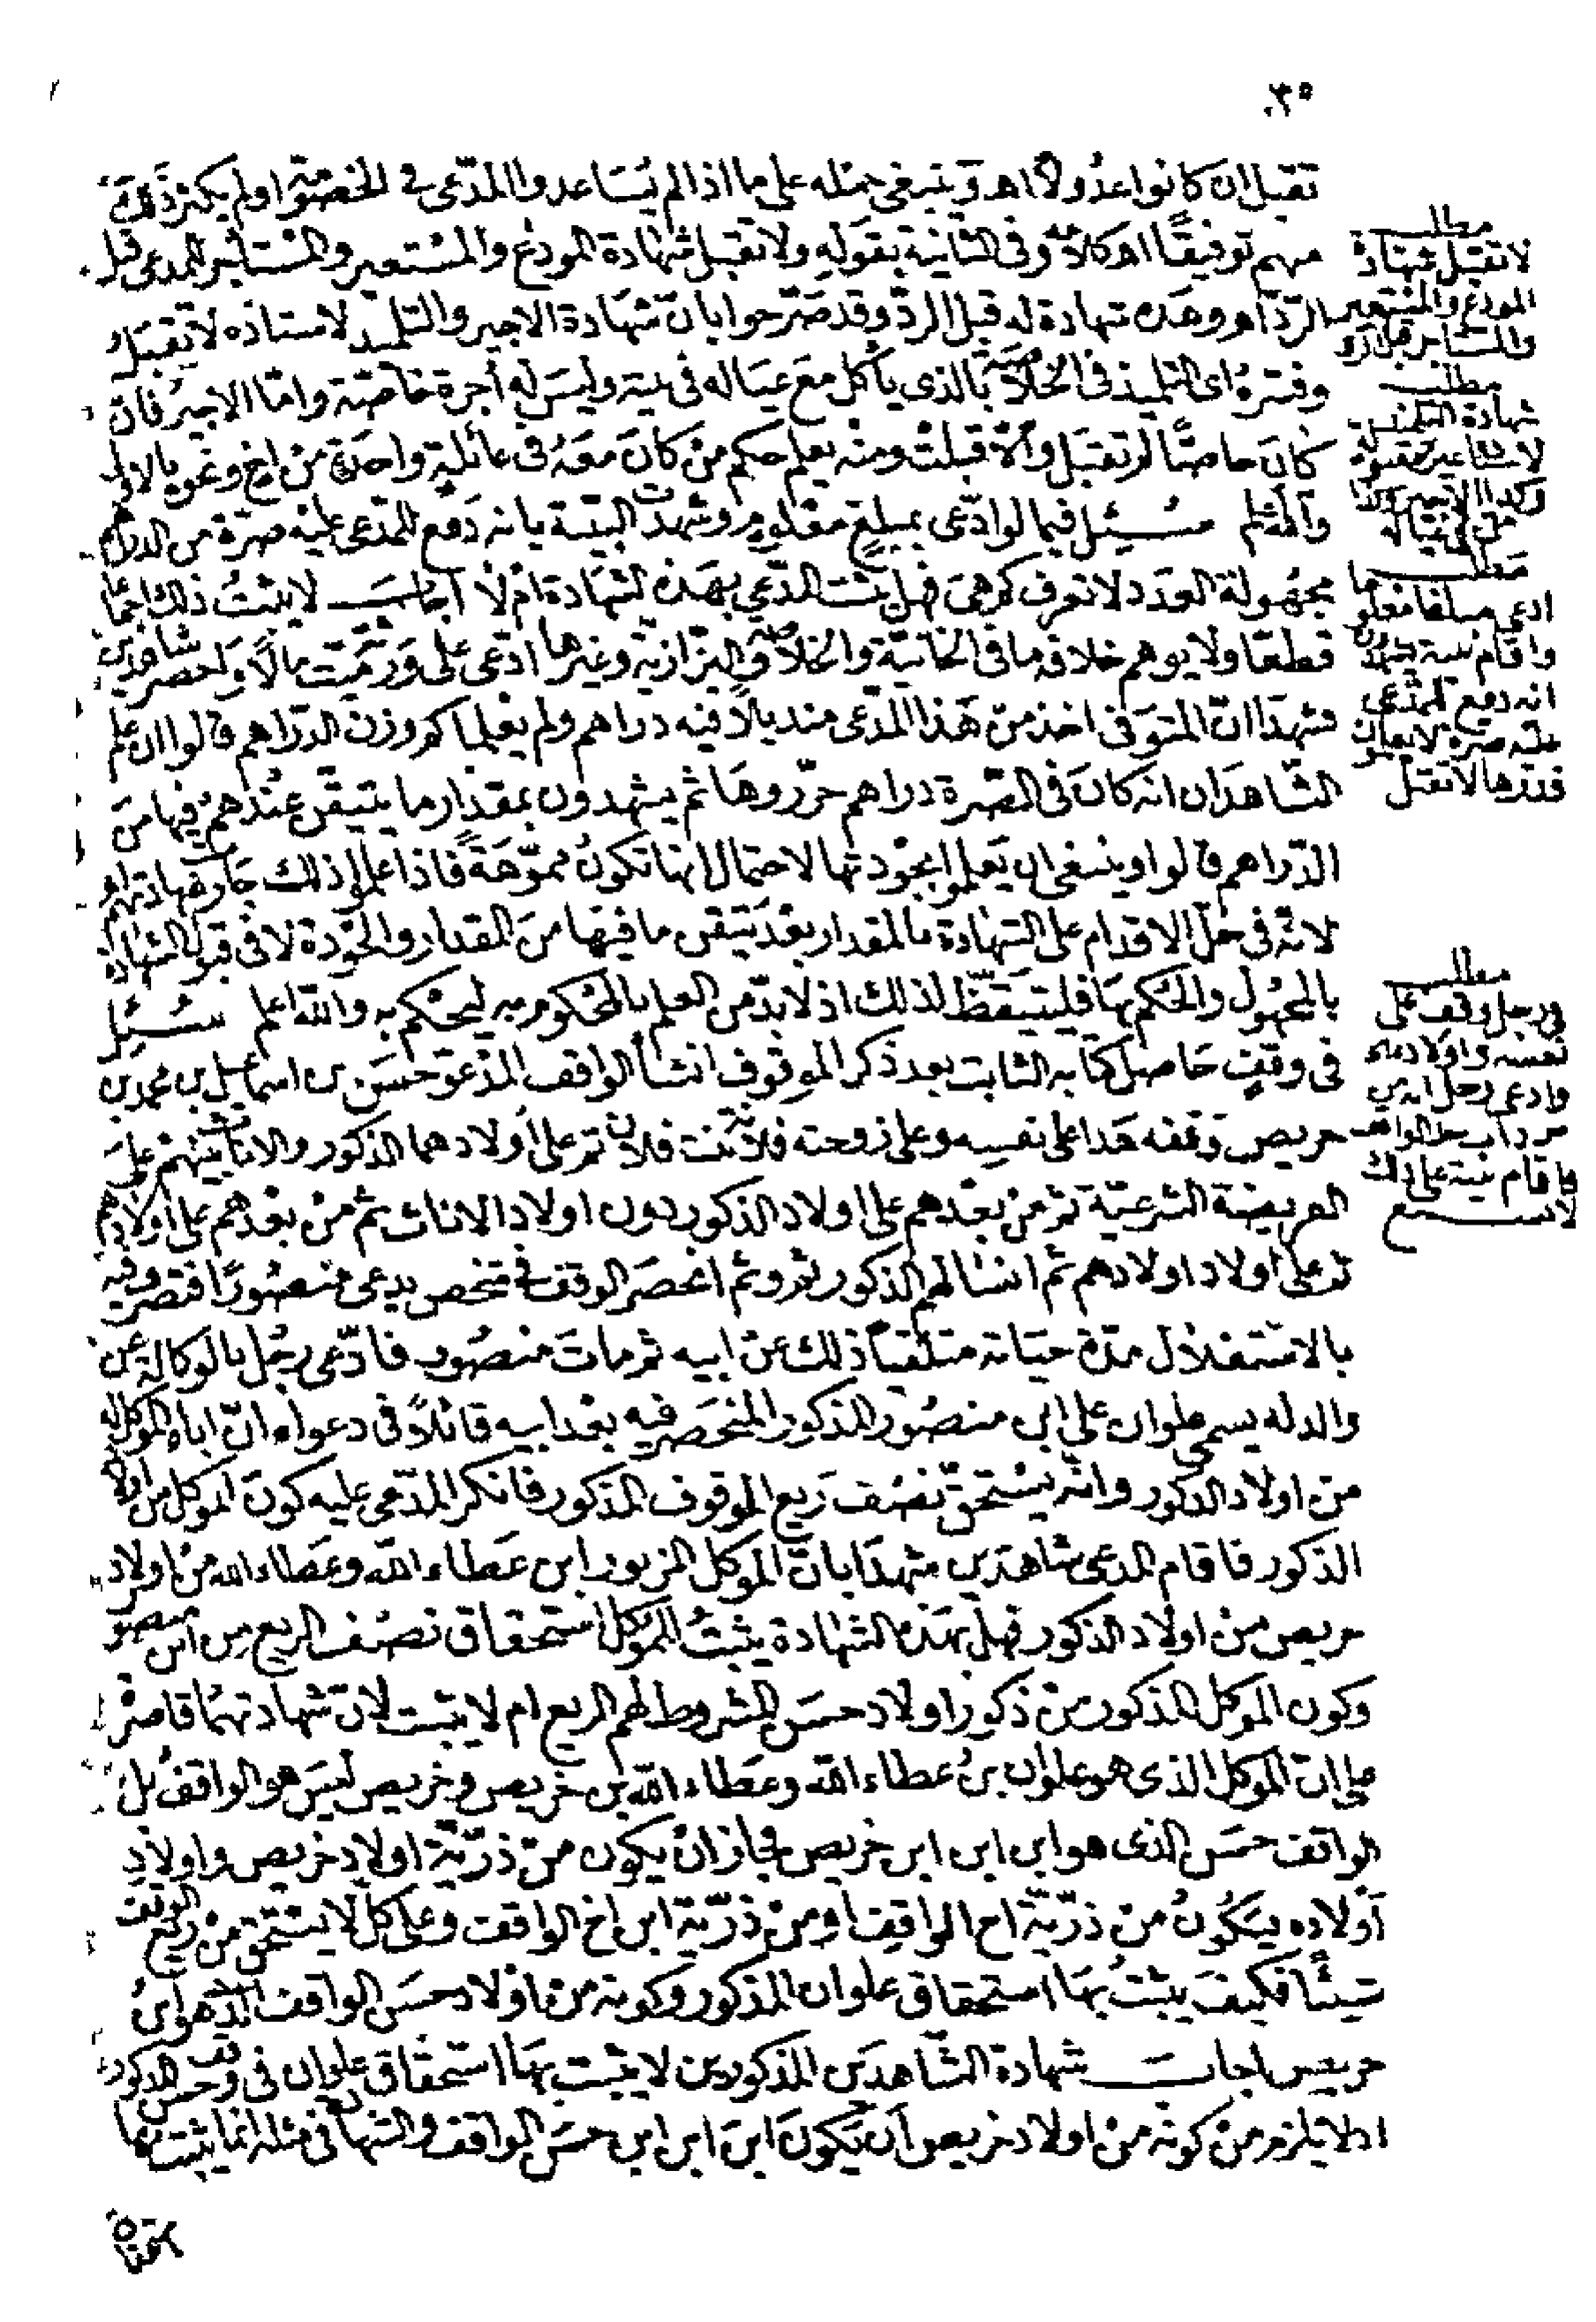 ٣٥
تقبل ان كانوا عدولا اهـ وينبغي حمله على ما اذا لم يساعدوا المدعى في الخصومة او لم يكثر ذلك
منهم توفيقا اهـ كلامه وفي الثانية بقوله ولا تقبل شهادة المودع والمستعير والمستأجر للمدعى قبل
الرد اهـ وهذه شهادة له قبل الرد وقد صرحوا بان شهادة الاجير والتلميذ لاستاذه لا تقبل
وفسره اى التلميذ في الخلاصة بالذى يأكل مع عياله في بيته وليس له أجرة خاصة واما الاجير فان
كان خاصا لم تقبل والا قبلت ومنه يعلم حكم من كان معه في عائلة واحدة من اخ ونحوه بالاولى
والله اعلم سئل فيما لو ادعى بمبلغ معلوم وشهدت البينة بانه دفع للمدعى عليه صرة من الدراهم
مجهولة العدد لا تعرف كم هي فهل يثبت المدعي بهذه الشهادة ام لا اجاب لا يثبت ذلك اجماعا
قطعا ولا يوهم خلافه ما في الخانية والخلاصة والبزازية وغيرها ادعى على ورثة ميت مالا واحضر شاهدين
فشهدا ان المتوفى اخذ من هذا المدعى منديلا فيه دراهم ولم يعلما كم وزن الدراهم قالوا ان علم
الشاهدان انه كان في الصرة دراهم حرروها ثم يشهدون بمقدار ما يتيقن عندهم فيها من
الدراهم قالوا وينبغى ان يعلموا بجودتها لاحتمال انها تكون مموهة فاذا علموا ذلك جاز شهادتهم اهـ
لانه في حل الاقدام على الشهادة بالمقدار بعد تيقن ما فيها من المقدار والجودة لا في قبول الشهادة
بالمجهول والحكم بها فليتيقظ لذلك اذ لا بد من العلم بالمحكوم به ليحكم به والله اعلم سئل
في وقف حاصل كتابه الثابت بعد ذكر الموقوف انشأ الواقف المدعو حسن بن اسماعيل بن محمد بن
حريص وقفه هذا على نفسه وعلى زوجته فلانة بنت فلان ثم على أولادهما الذكور والاناث بينهم على
الفريضة الشرعية ثم من بعدهم على اولاد الذكور دون اولاد الاناث ثم من بعدهم على اولادهم
ثم على اولاد اولادهم ثم انسالهم الذكور ثم وثم انحصر الوقف في شخص يدعى منصورا فتصرف فيه
بالاستغلال مدة حياته متلقيا ذلك عن ابيه ثم مات منصور فادعى رجل بالوكالة عن
والد له يسمى علوان على ابن منصور المذكور المنحصر فيه بعد ابيه قائلا في دعواه ان اباه الموكل له
من اولاد الذكور وانه يستحق نصف ريع الموقوف المذكور فانكر المدعى عليه كون الموكل من اولاد
الذكور فاقام المدعى شاهدين شهدا بان الموكل المزبور ابن عطاء الله وعطاء الله من اولاد
حريص من اولاد الذكور فهل بهذه الشهادة يثبت للموكل استحقاق نصف الريع من ابن منصور
وكون الموكل المذكور من ذكور اولاد حسن المشروط لهم الريع ام لا يثبت لان شهادتهما قاصرة
على ان الموكل الذى هو علوان بن عطاء الله وعطاء الله بن خريص وخريص ليس هو الواقف بل
الواقف حسن الذى هو ابن ابن ابن خريص فجاز ان يكون من ذرية اولاد خريص واولاد
أولاده فيكون من ذرية اخ الواقف او من ذرية ابن اخ الواقف وعلى كل لا يستحق من ريع الوقف
شيئا فكيف يثبت بها استحقاق علوان المذكور وكونه من اولاد حسن الواقف الذى هو ابن
حريص اجاب شهادة الشاهدين المذكورين لا يثبت بها استحقاق علوان في وقف حسن المذكور
اذ لا يلزم من كونه من اولاد خريص ان يكون ابن ابن ابن حسن الواقف والشهادة في مثله انما يثبت بها
مطلب
لا تقبل شهادة
المودع والمستعير
والمستأجر قبل الرد
مطلب
شهادة التلميذ
لاستاذه غير مقبولة
وكذا الاجير وكذا
من في عياله
مطلب
ادعى مبلغا معلوما
واقام بينة شهدت
انه دفع للمدعى
عليه صرة لا يعلمان
قدرها لا تقبل
مطلب
في رجل وقف على
نفسه واولاده
وادعى رجل انه من
واقام بينة على ذلك
لا تسمع